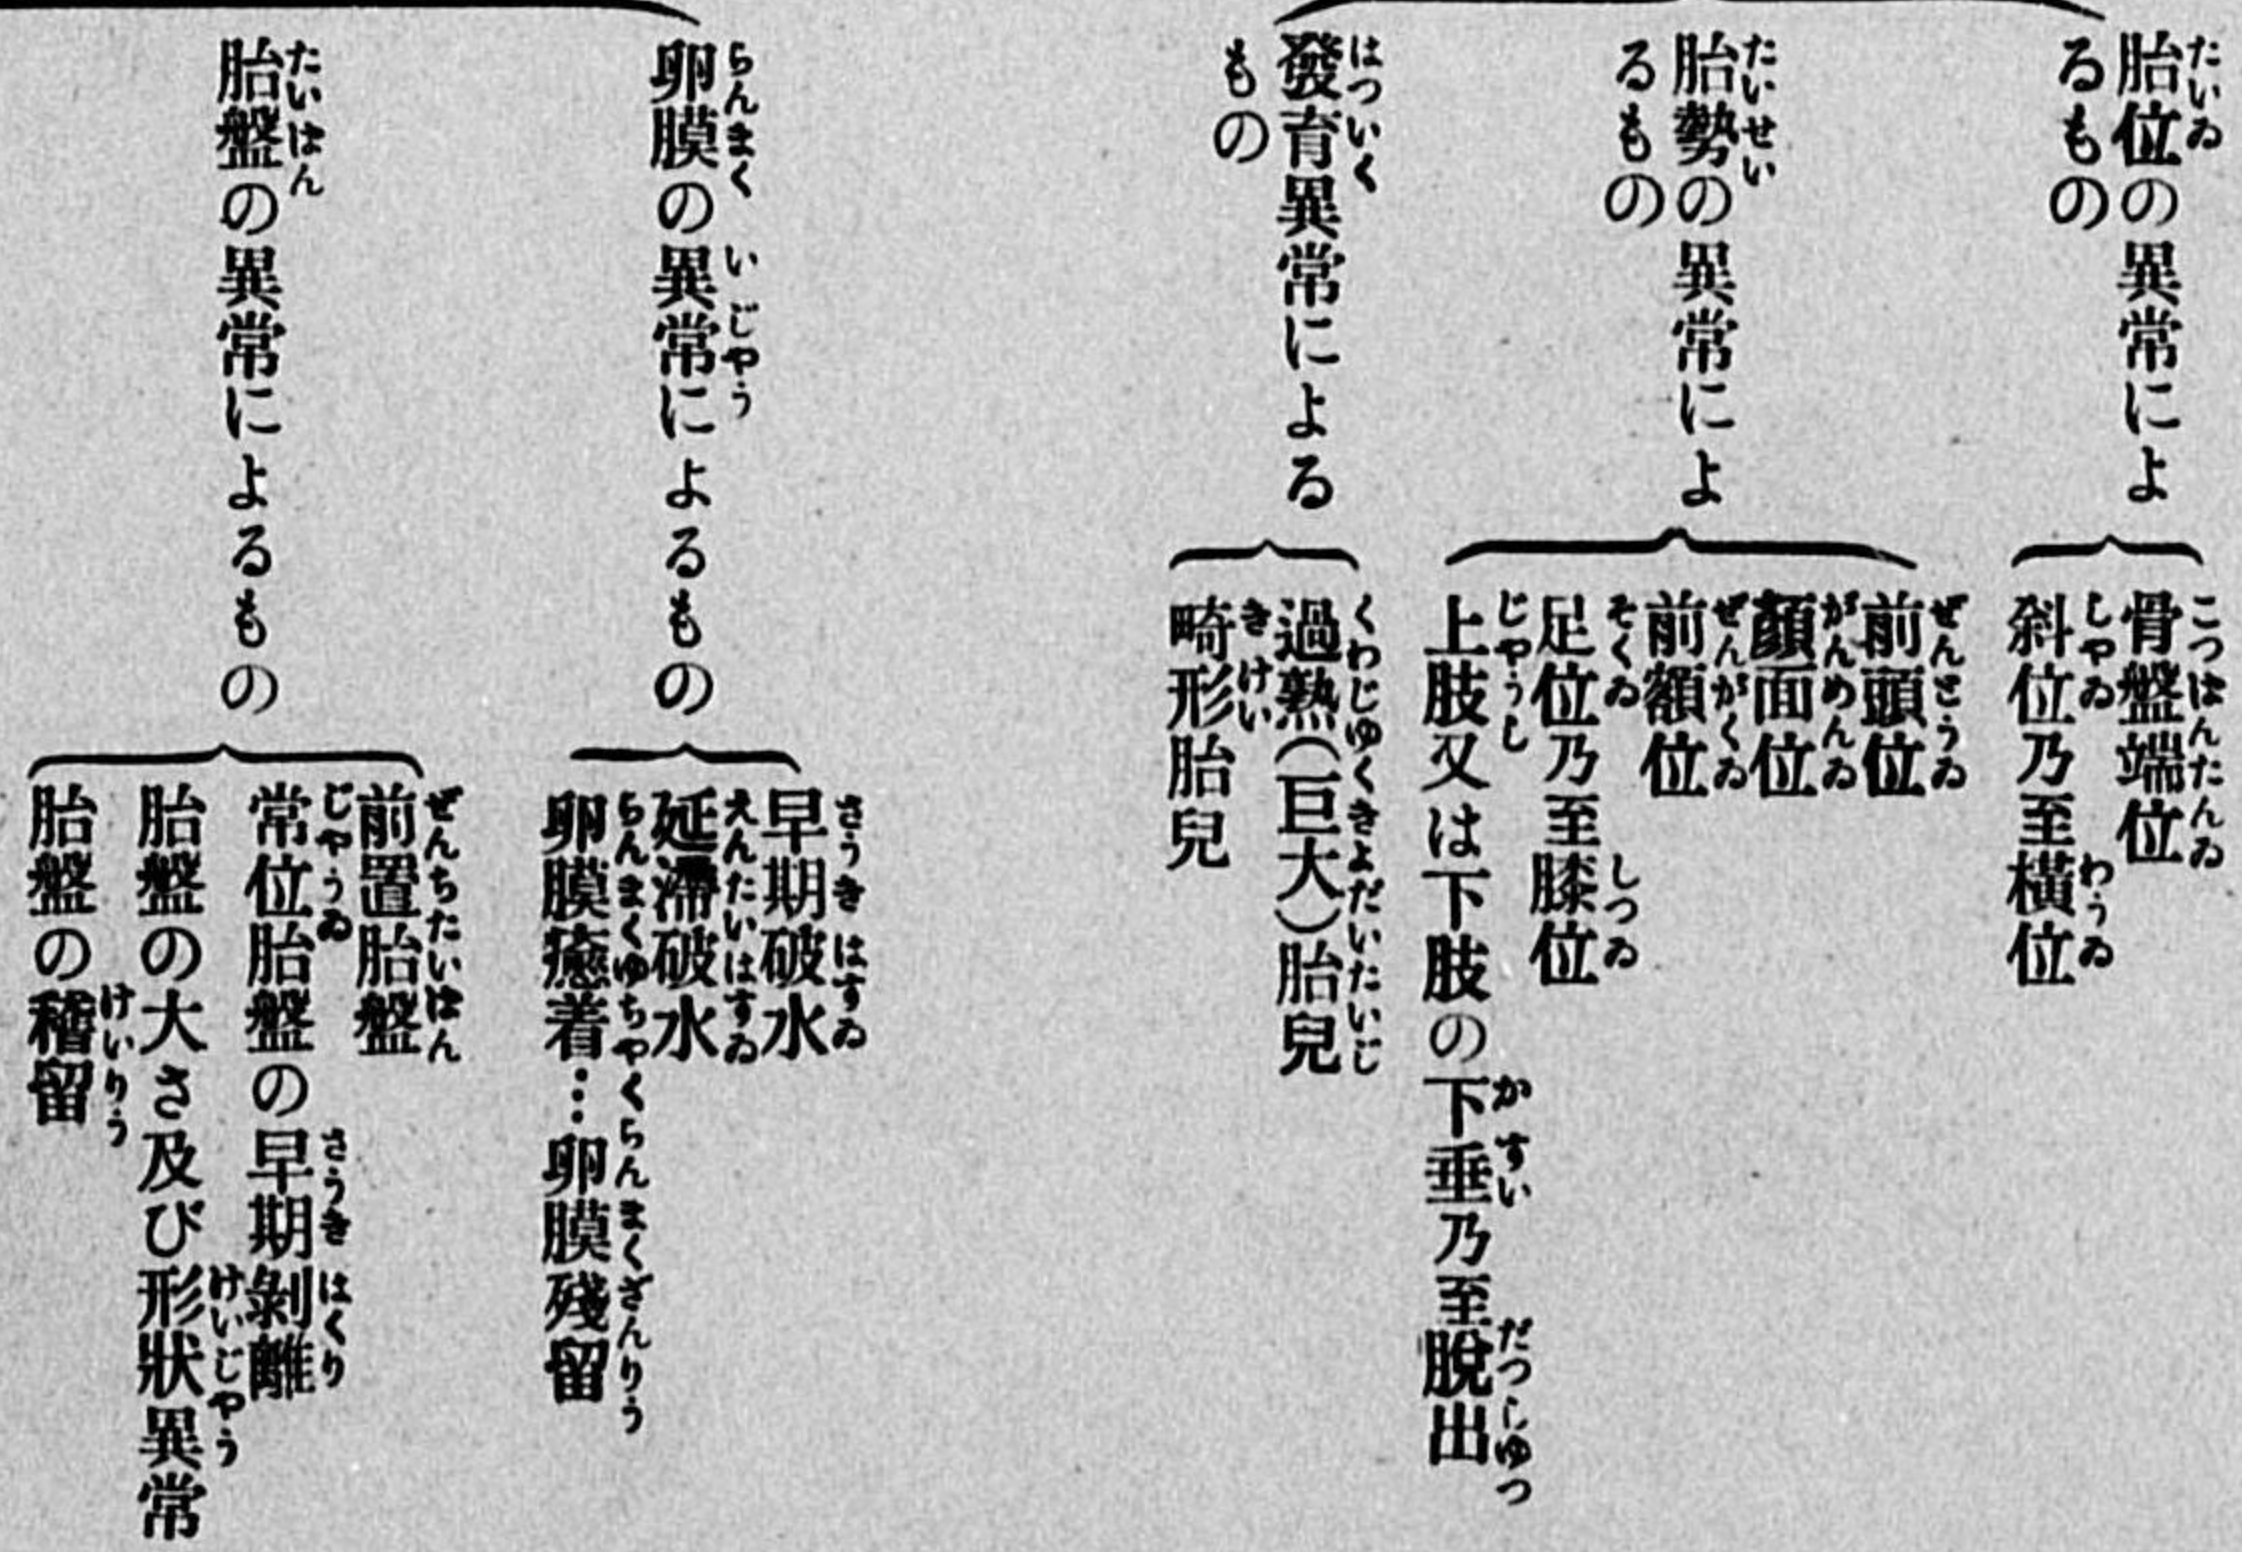 胎位の異常によ
るもの
骨盤端位
斜位乃至横位
胎勢の異常によ
るもの
前頭位
顏面位
前額位
足位乃至膝位
上肢又は下肢の下垂乃至脫出
發育異常による
もの
過熟(巨大)胎兒
畸形胎兒
卵膜の異常によるもの
早期破水
延滯破水
卵膜癒着…卵膜殘留
胎盤の異常によるもの
前置胎盤
常位胎盤の早期剝離
胎盤の大さ及び形狀異常
胎盤の稽留